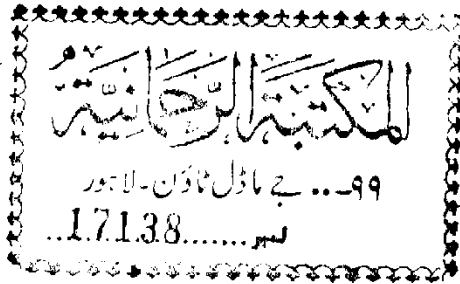 المكتبة الرحمانية
۹۹-.. جے ماڈل ٹاؤن - لاہور
نمبر.......17138..